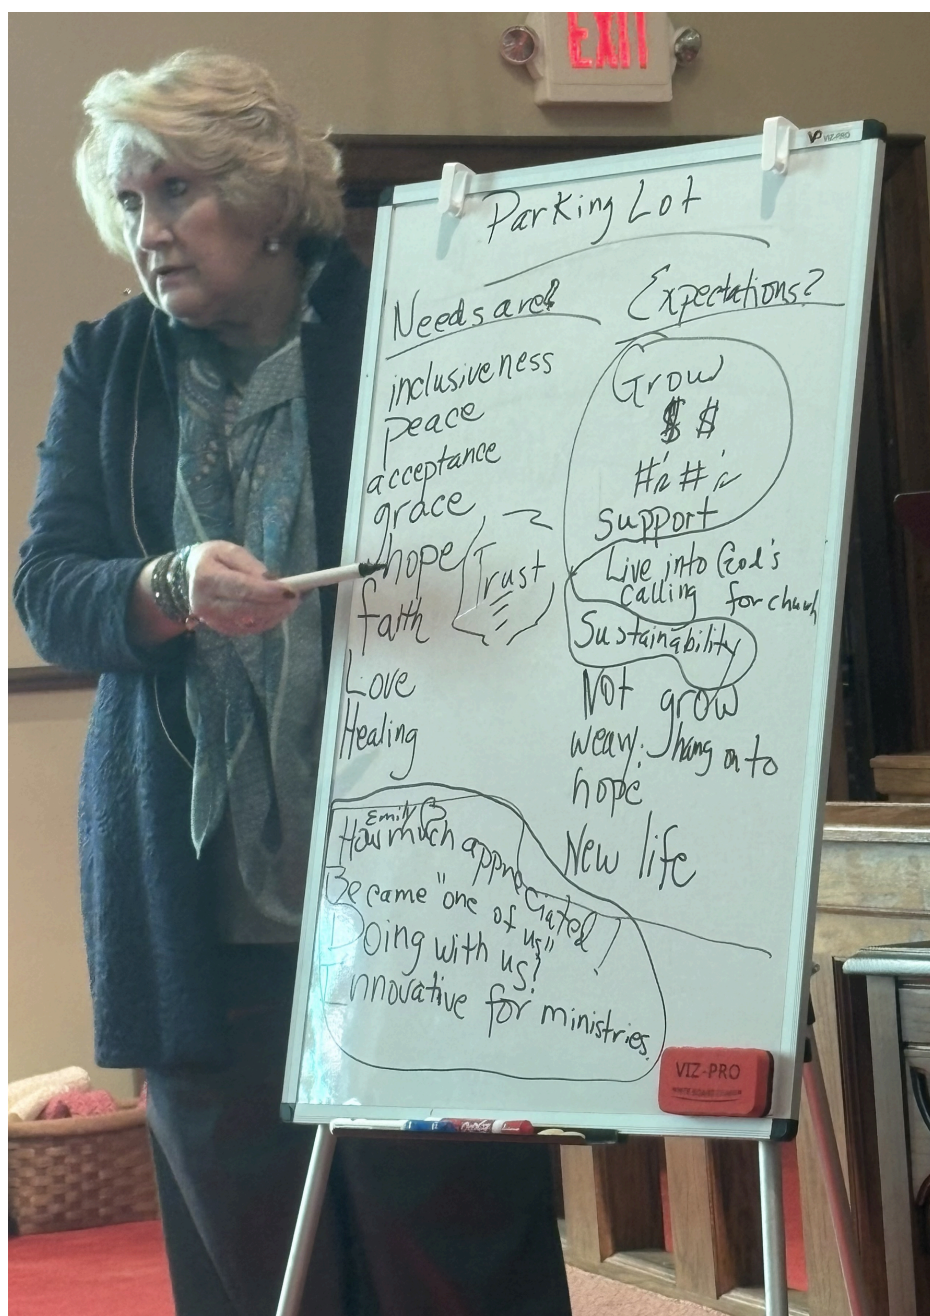 EXIT
VP VIZ-PRO
Parking Lot
Needs are?
inclusiveness
peace
acceptance
grace
hope
faith
Trust
Love
Healing
Expectations?
Grow
$ $
#'s #'s
support
Live into God's
calling for church
Sustainability
Not grow
weary. hang on to
hope
New life
Emily B
How much appreciated
Became "one of us"
Doing with us?
Innovative for ministries.
VIZ-PRO
EXPO